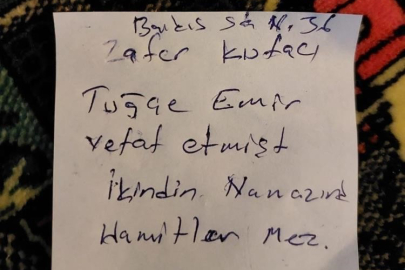 Barkış Sk N. 36
Zafer Kutacı
Tuğçe Emir
vefat etmişt
İkindin Namazınd
Hamitler Mez.